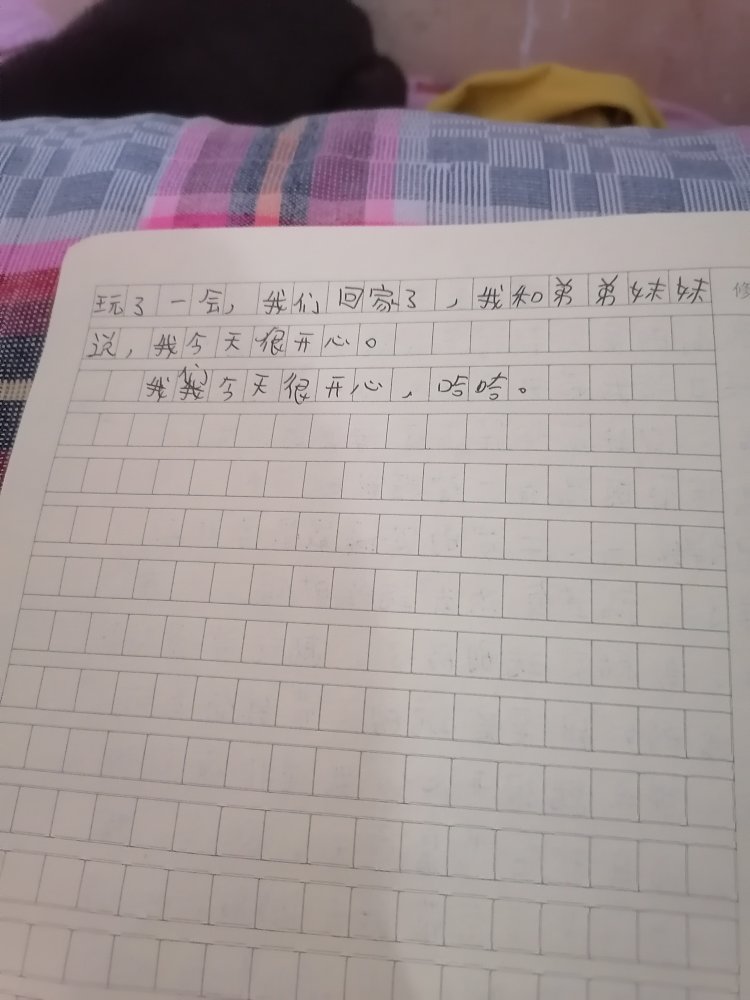 玩了一会，我们回家了，我和弟弟妹妹
说，我今天很开心。
我们今天很开心，哈哈。
修